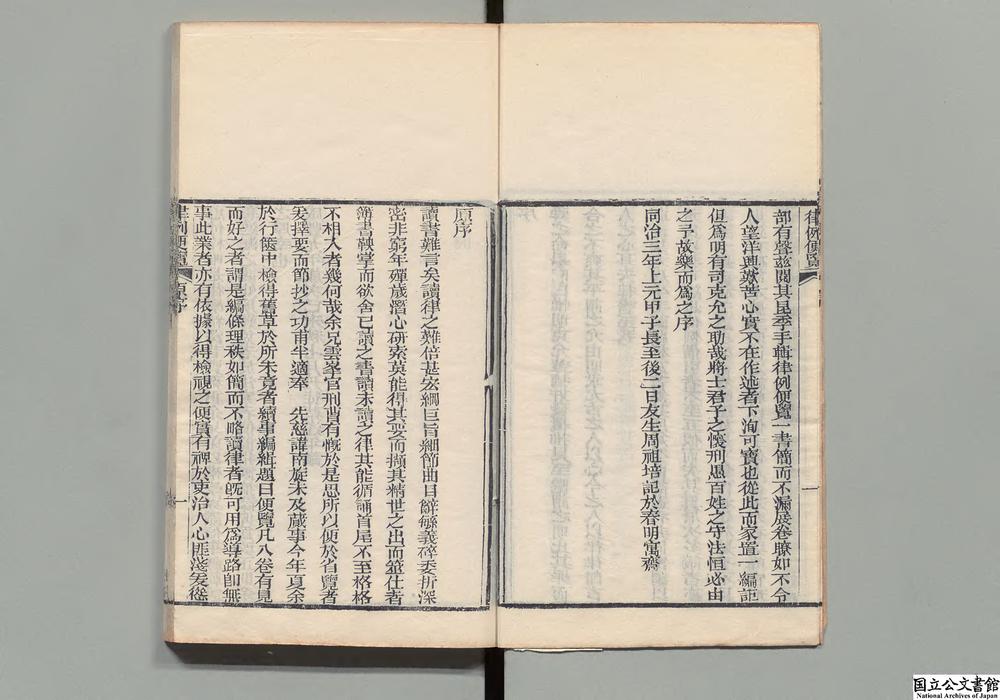 律例便覽
部有聲兹閱其昆季手輯律例便覽一書簡而不漏展卷瞭如不令
人望洋興嘆苦心實不在作述者下洵可寶也從此而家置一編詎
但爲明有司克允之助哉將士君子之懷刑愚百姓之守法恒必由
之予故樂而爲之序
同治三年上元甲子長至後二日友生周祖培記於春明寓齋
一
原序
讀書難言矣讀律之難倍甚宏綱巨旨細節曲目辭繁義碎委折深
密非窮年殫歲潛心研索莫能得其要而擷其精世之出而筮仕者
簿書鞅掌而欲舍已讀之書讀未讀之律其能循誦首尾不至格格
不相入者幾何哉余兄雲峯官刑曹有慨於是思所以便於省覽者
爰擇要而節抄之功甫半適奉 先慈諱南旋未及蕆事今年夏余
於行篋中檢得舊草於所未竟者續事編緝題曰便覽凡八卷有見
而好之者謂是編條理秩如簡而不略讀律者旣可用爲導路卽無
事此業者亦有依據以得檢視之便實有裨於吏治人心匪淺爰從
律例便覽
原序
一
国立公文書館
National Archives of Japan